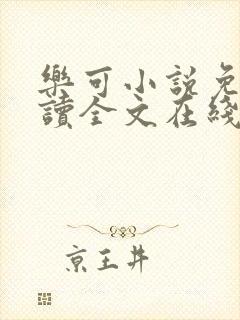 樂可小説免
讀全文在綫
京王井